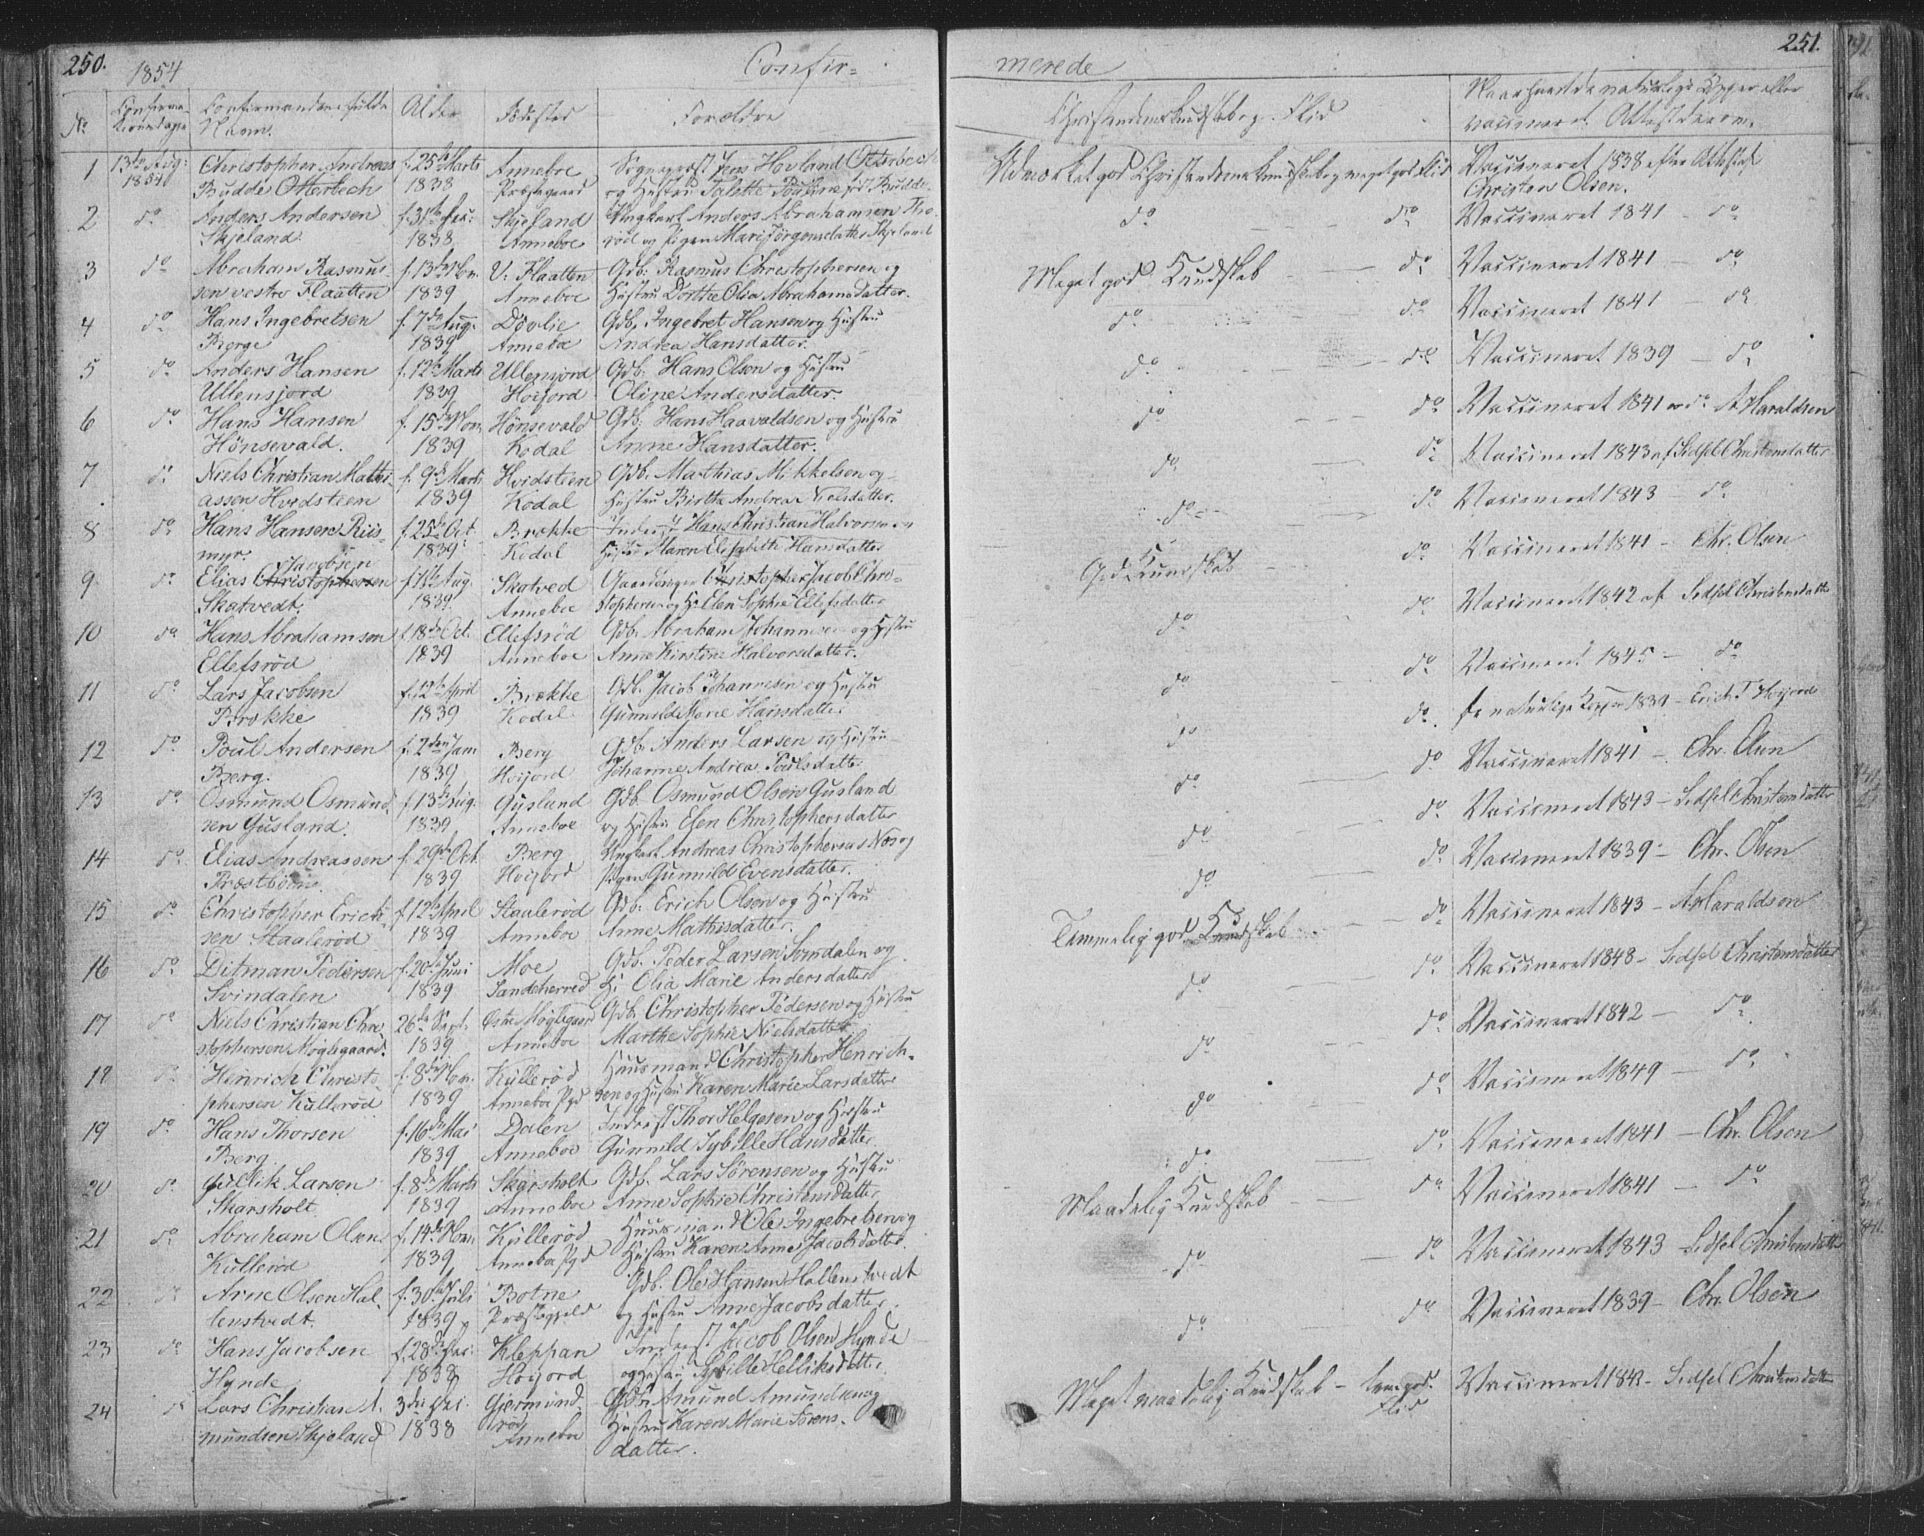 250.
1854
Confir-
No
Confirma-
tionsdagen
Confirmandens fulde
Navn.
Alder
Fødested
Forældre
1 13de Aug: 1854 Christopher Andreas f. 25de Marts Anneboe Sogneprest Jens Hovland Otterbech
Budde Otterbech 1838 Præstegaard og Hustru født Budde
2 do Anders Andersen f. 31te Skjeland Ungkarl Anders Abrahamsen Tho-
Skjeland 1838 Anneboe rød og Pigen Mari Jørgensdatter Skjeland
3 do Abraham Rasmus- f. 13de Nov. V. Flaatten Gdb. Rasmus Christophersen og
sen vestre Flaatten 1839 Anneboe Hustru Dorthe Olia Abrahamsdatter.
4 do Hans Ingebretsen f. 7de Aug. Døvlie Gdb. Ingebret Hansen og Hustru
Berge 1839 Anneboe Andrea Hansdatter.
5 do Anders Hansen f. 12te Marts Ullensjord Gdb. Hans Olsen og Hustru
Ullensjord 1839 Hoijord Oline Andersdatter.
6 do Hans Hansen f. 15de Nov. Hønsevald Gdb. Hans Haavaldsen og Hustru
Hønsevald. 1839 Kodal Anne Hansdatter.
7 do Niels Christian Mathi- f. 9de Marts Hvidsteen Gdb. Mathias Mikkelsen og
assen Hvidsteen 1839 Kodal Hustru Birthe Andrea Nielsdatter.
8 do Hans Hansen Riis- f. 25de Oct. Brække Inderst Hans Christian Halvorsen
myr. 1839 Kodal Hustru Maren Elisabeth Hansdatter
Jacobsen
9 do Elias Christophersen f. 11te Aug. Skatved Gaardbruger Christopher Jacob Chri-
Skatvedt. 1839. Anneboe stophersen og H. Elen Sophie Ellefsdatter
10 do Hans Abrahamsen f. 18de Oct. Ellefsrød Gdb. Abraham Johannesen og Hustru
Ellefsrød 1839 Anneboe Anne Kirstine Halvorsdatter.
11 do Lars Jacobsen f. 12te April Brække Gdb. Jacob Johannesen og Hustru
Brække 1839 Kodal Gunnild Marie Hansdatter
12 do Poul Andersen f. 2den Jan Berg Gdb. Anders Larsen og Hustru
Berg. 1839 Hoijord Johanne Andrea Poulsdatter
13 do Osmund Osmund- f. 13de Aug. Gusland Gdb. Osmund Olsen Gusland
sen Gusland. 1839 Anneboe og Hustru Elen Christophersdatter
14 do Elias Andreassen f. 29de Oct. Berg Ungkarl Andreas Christophersen Næs og
Præstbøen. 1839 Hoijord Pigen Gunnild Evensdatter.
15 do Christopher Erich- f. 12te April Staalerød Gdb. Erich Olsen og Hustru
sen Staalerød 1839 Anneboe Anne Mathisdatter.
16 do Ditman Pedersen f. 20de Juni Moe Gdb. Peder Larsen Svindalen og
Svindalen 1839 Sandeherred H. Olia Marie Andersdatter
17 do Niels Christian Chri- 26de Sept. Østre Møglegaard Gdb. Christopher Pedersen og Hustru
stophersen Møglegaard. 1839 Anneboe Marthe Sophie Nielsdatter
18 do Henrich Christo- f. 8de Nov. Kullerød Huusmand Christopher Henrich-
phersen Kullerød 1839 Anneboe Pgd sen og Hustru Karen Marie Larsdatter
19 do Hans Thorsen f. 16de Mai Dalen Inderst Thor Helgesen og Hustru
Berg. 1839 Anneboe Gunnild Sybille Hansdatter
20 do Gullik Larsen f. 8de Marts Skarsholt Gdb. Lars Sørensen og Hustru
Skarsholt 1839 Anneboe Anne Sophie Christensdatter
21 do Abraham Olsen f. 14de Nov. Kullerød Huusmand Ole Ingebretsen og
Kullerød 1839 Anneboe Pgd Hustru Karen Anne Jacobsdatter.
22 do Arne Olsen Hal- f. 30de Juli Botne Gdb. Ole Hansen Hallenstvedt
lenstvedt. 1839 Præstegjeld og Hustru Anne Jacobsdatter.
23 do Hans Jacobsen f. 28de Kleppan Inderst Jacob Olsen Hynde
Hynde 1838 Hoijord og Hustru Sybille Helliksdatter
24 do Lars Christian A- 3die Gjermund- Gdb. Amund Amundsen og
mundsen Skjeland 1838 rød Anneboe Hustru Karen Marie Sørens-
datter.
251.
merede
Christendoms Kundskab og Flid
Naar havt de naturlige Kopper eller
vaccineret. Attest derom.
Udmærket god Christendoms kundskab og meget god Flid Vaccineret 1838 efter Attest af
Christen Olsen.
do do Vaccineret 1841 - do
Meget god Kundskab do Vaccineret 1841 - do
do do Vaccineret 1841 - do
do do Vaccineret 1839 - do
do do Vaccineret 1841 A. Haraldsen
do do Vaccineret 1843 af Sidsel Christensdatter
do do Vaccineret 1843 - do
God Kundskab do Vaccineret 1841 - Chr. Olsen
do do Vaccineret 1842 af Sidsel Christensdatter
do do Vaccineret 1845 - do
do do. de naturlige Kopper 1839 - Erich T. Hoijord
do do Vaccineret 1841 - Chr. Olsen
do do Vaccineret 1843 - Sidsel Christensdatter
do do Vaccineret 1839 - Chr. Olsen
Temmelig god Kundskab do Vaccineret 1843 - A. Haraldsen
do do Vaccineret 1848 - Sidsel Christensdatter
do do Vaccineret 1842 - do
do do Vaccineret 1849 - do
do do Vaccineret 1841 - Chr. Olsen
Maadelig Kundskab do Vaccineret 1841 - do
do do Vaccineret 1843 Sidsel Christensdatter
do do Vaccineret 1839 - Chr. Olsen
Meget maadelig Kundskab - tem. god Flid Vaccineret 1842 - Sidsel Christensdatter